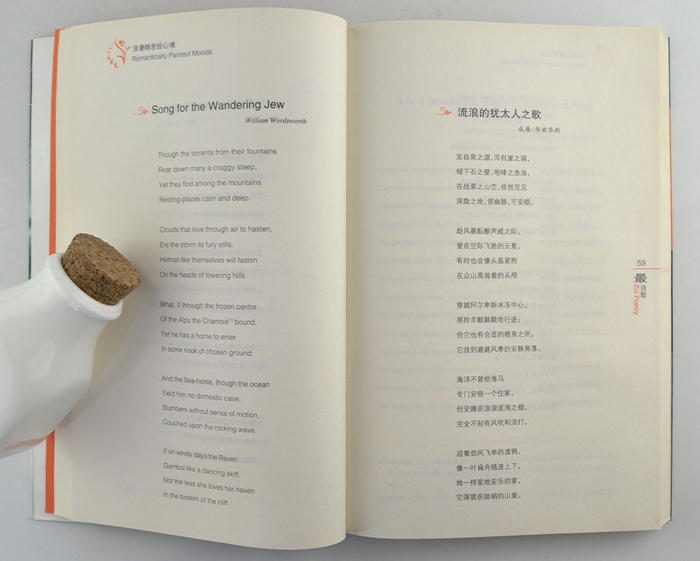 浪漫绮思绘心境
Romantically Painted Moods
Song for the Wandering Jew
William Wordsworth
Though the torrents from their fountains
Roar down many a craggy steep,
Yet they find among the mountains
Resting-places calm and deep.
Clouds that love through air to hasten,
Ere the storm its fury stills,
Helmet-like themselves will fasten
On the heads of towering hills.
What, if through the frozen centre
Of the Alps the Chamois[1] bound,
Yet he has a home to enter
In some nook of chosen ground:
And the Sea-horse, though the ocean
Yield him no domestic cave,
Slumbers without sense of motion,
Couched upon the rocking wave.
If on windy days the Raven
Gambol like a dancing skiff,
Not the less she loves her haven
In the bosom of the cliff.
流浪的犹太人之歌
威廉·华兹华斯
发自泉之源,泻自崖之端,
倾下石之壁,咆哮之急湍,
在战栗之山峦,依然觅见
深隐之地,偌幽静,可安眠。
趁风暴酝酿声威之际,
爱在空际飞驰的云霓,
有时也会像头盔紧附
在众山高耸着的头颅
穿越阿尔卑斯冰冻中心,
那羚羊颤颤颠地行进;
但它也有合适的栖身之所,
它找到避避风寒的安静角落。
海洋不曾给海马
专门安顿一个住家,
但安睡在浪滚波涛之榻,
完全不知有风吹和浪打。
迎着劲风飞举的渡鸦,
像一叶扁舟随波上下,
她一样爱她安乐的家,
它深筑在陡峭的山崖。
59
最
诗歌
Zui Poetry